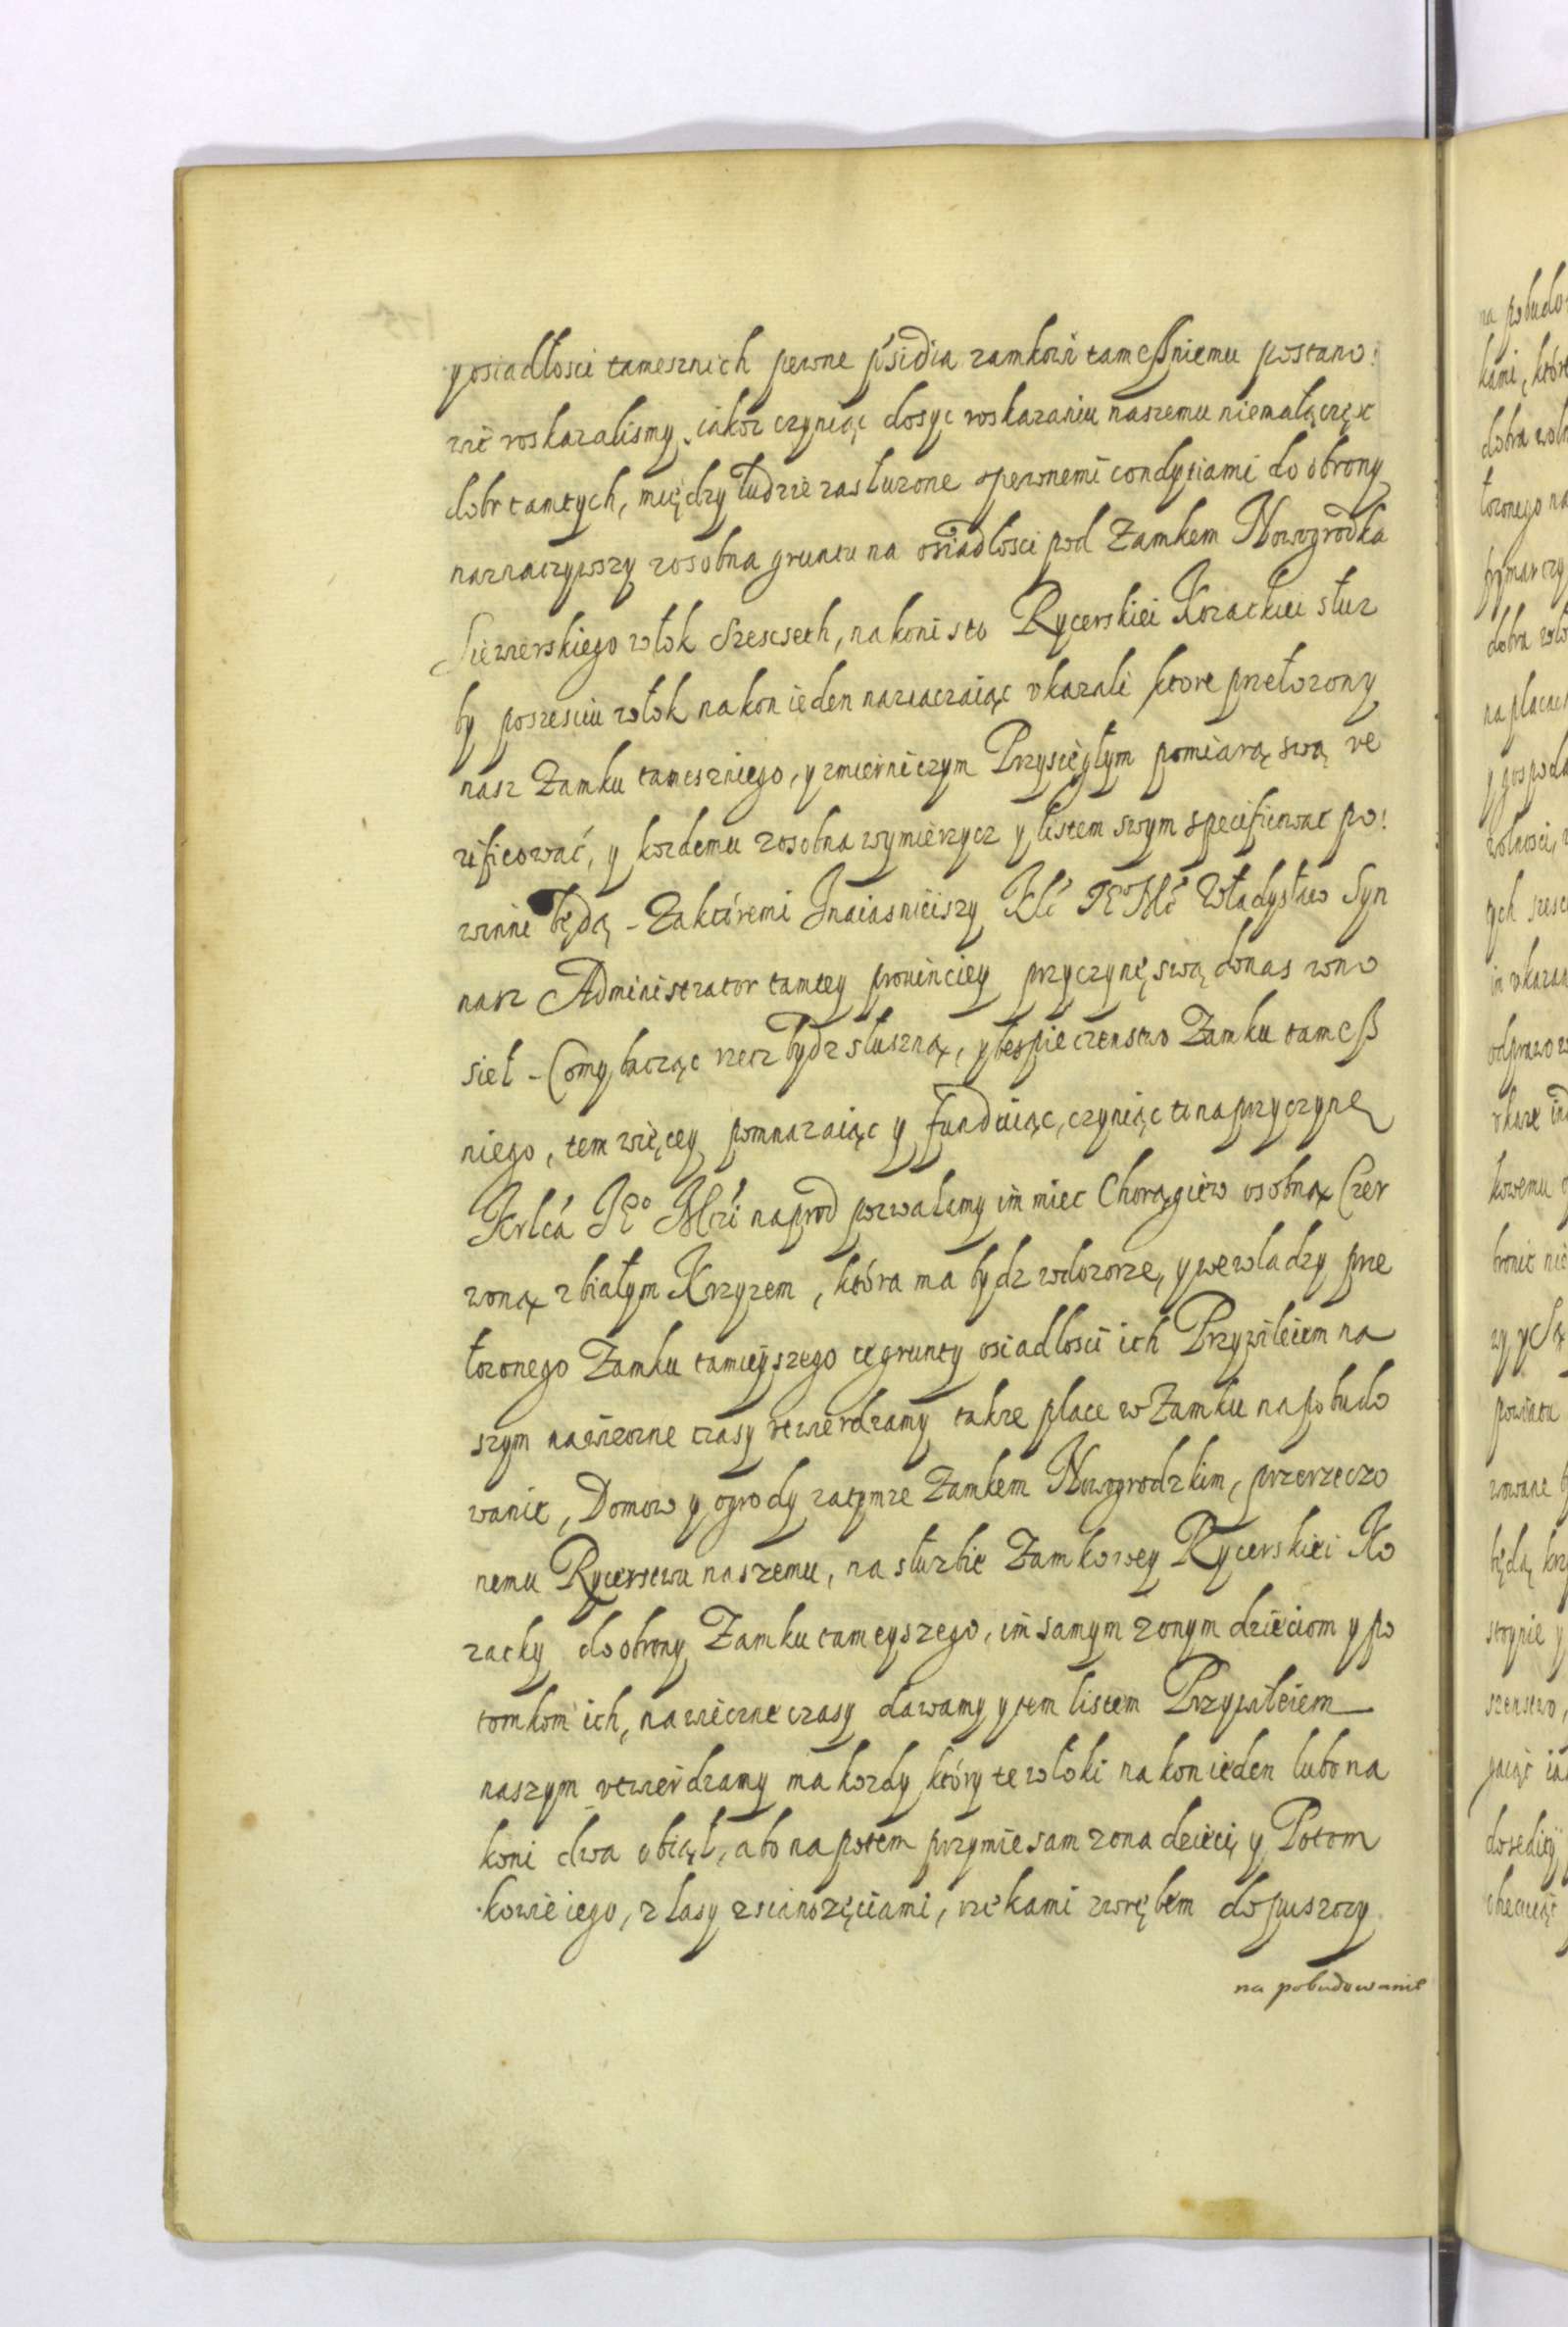 y osiadłosci tamesznich pewne p'sidia zamkowi tameßniemu postano:
wić roskazalismy, iakoz czyniąc dosyc roskazaniu naszemu niemałączęsc
dobr tamtych, między ludzie zasłuzone spewnemi condytiami do obrony
naznaczywszy zosobna gruntu na osiadłosci pod Zamkem Nowogrodka
Siewierskiego włok szescseth, na koni sto Rycerskiei Kozackiei słuz
by poszesciu włok na kon ieden naznaczaiąc vkazali ktore przełozony
nasz Zamku tameszniego, y zmierniczym Przysięgłym pomiarą swą ve
rificować, y kozdemu zosobna wymierzycz y listem swym specificować po:
winni będą - Zaktóremi Jnaiasnieiszy Klć JE° Mć Władysław Syn
nasz Administrator tamtey prouinciey przyczynę swą donas wno
sieł - Comy bacząc rzecz bydz słuszną, y bespieczenstwo Zamku tameß
niego, tem więcey pomnazaiąc y funduiąc, czyniąc to na przyczynę
Krlcá JE° Mći naprod pozwalamy im miec Chorągiew osobną Czer
woną z białym Krzyzem, która ma bydz wdozorze, y wewladzy prze
łozonego Zamku tamieyszego te grunty osiadłosci ich Przywileiem na
szym nawieczne czasy vtwierdzamy takze place w Zamku na pobudo
wanie, Domow y ogrody zatymze Zamkem Nowogrodzkim, przerzeczo
nemu Rycerstwu naszemu, na słuzbie Zamkowey Rycerskiei Ko
zacky do obrony Zamku tameyszego, im samym zonym dzieciom y po
tomkom ich, nawieczne czasy dawamy y tem listem Przywileiem
naszym vtwierdzamy ma kozdy który te włoki na kon ieden lubo na
koni dwa obiął, abo na potem przymie sam zona dzieci y Potom
kowie iego, z lasy zsianozęciami, rzekami zwrębem do puszczy
na pobudowanie